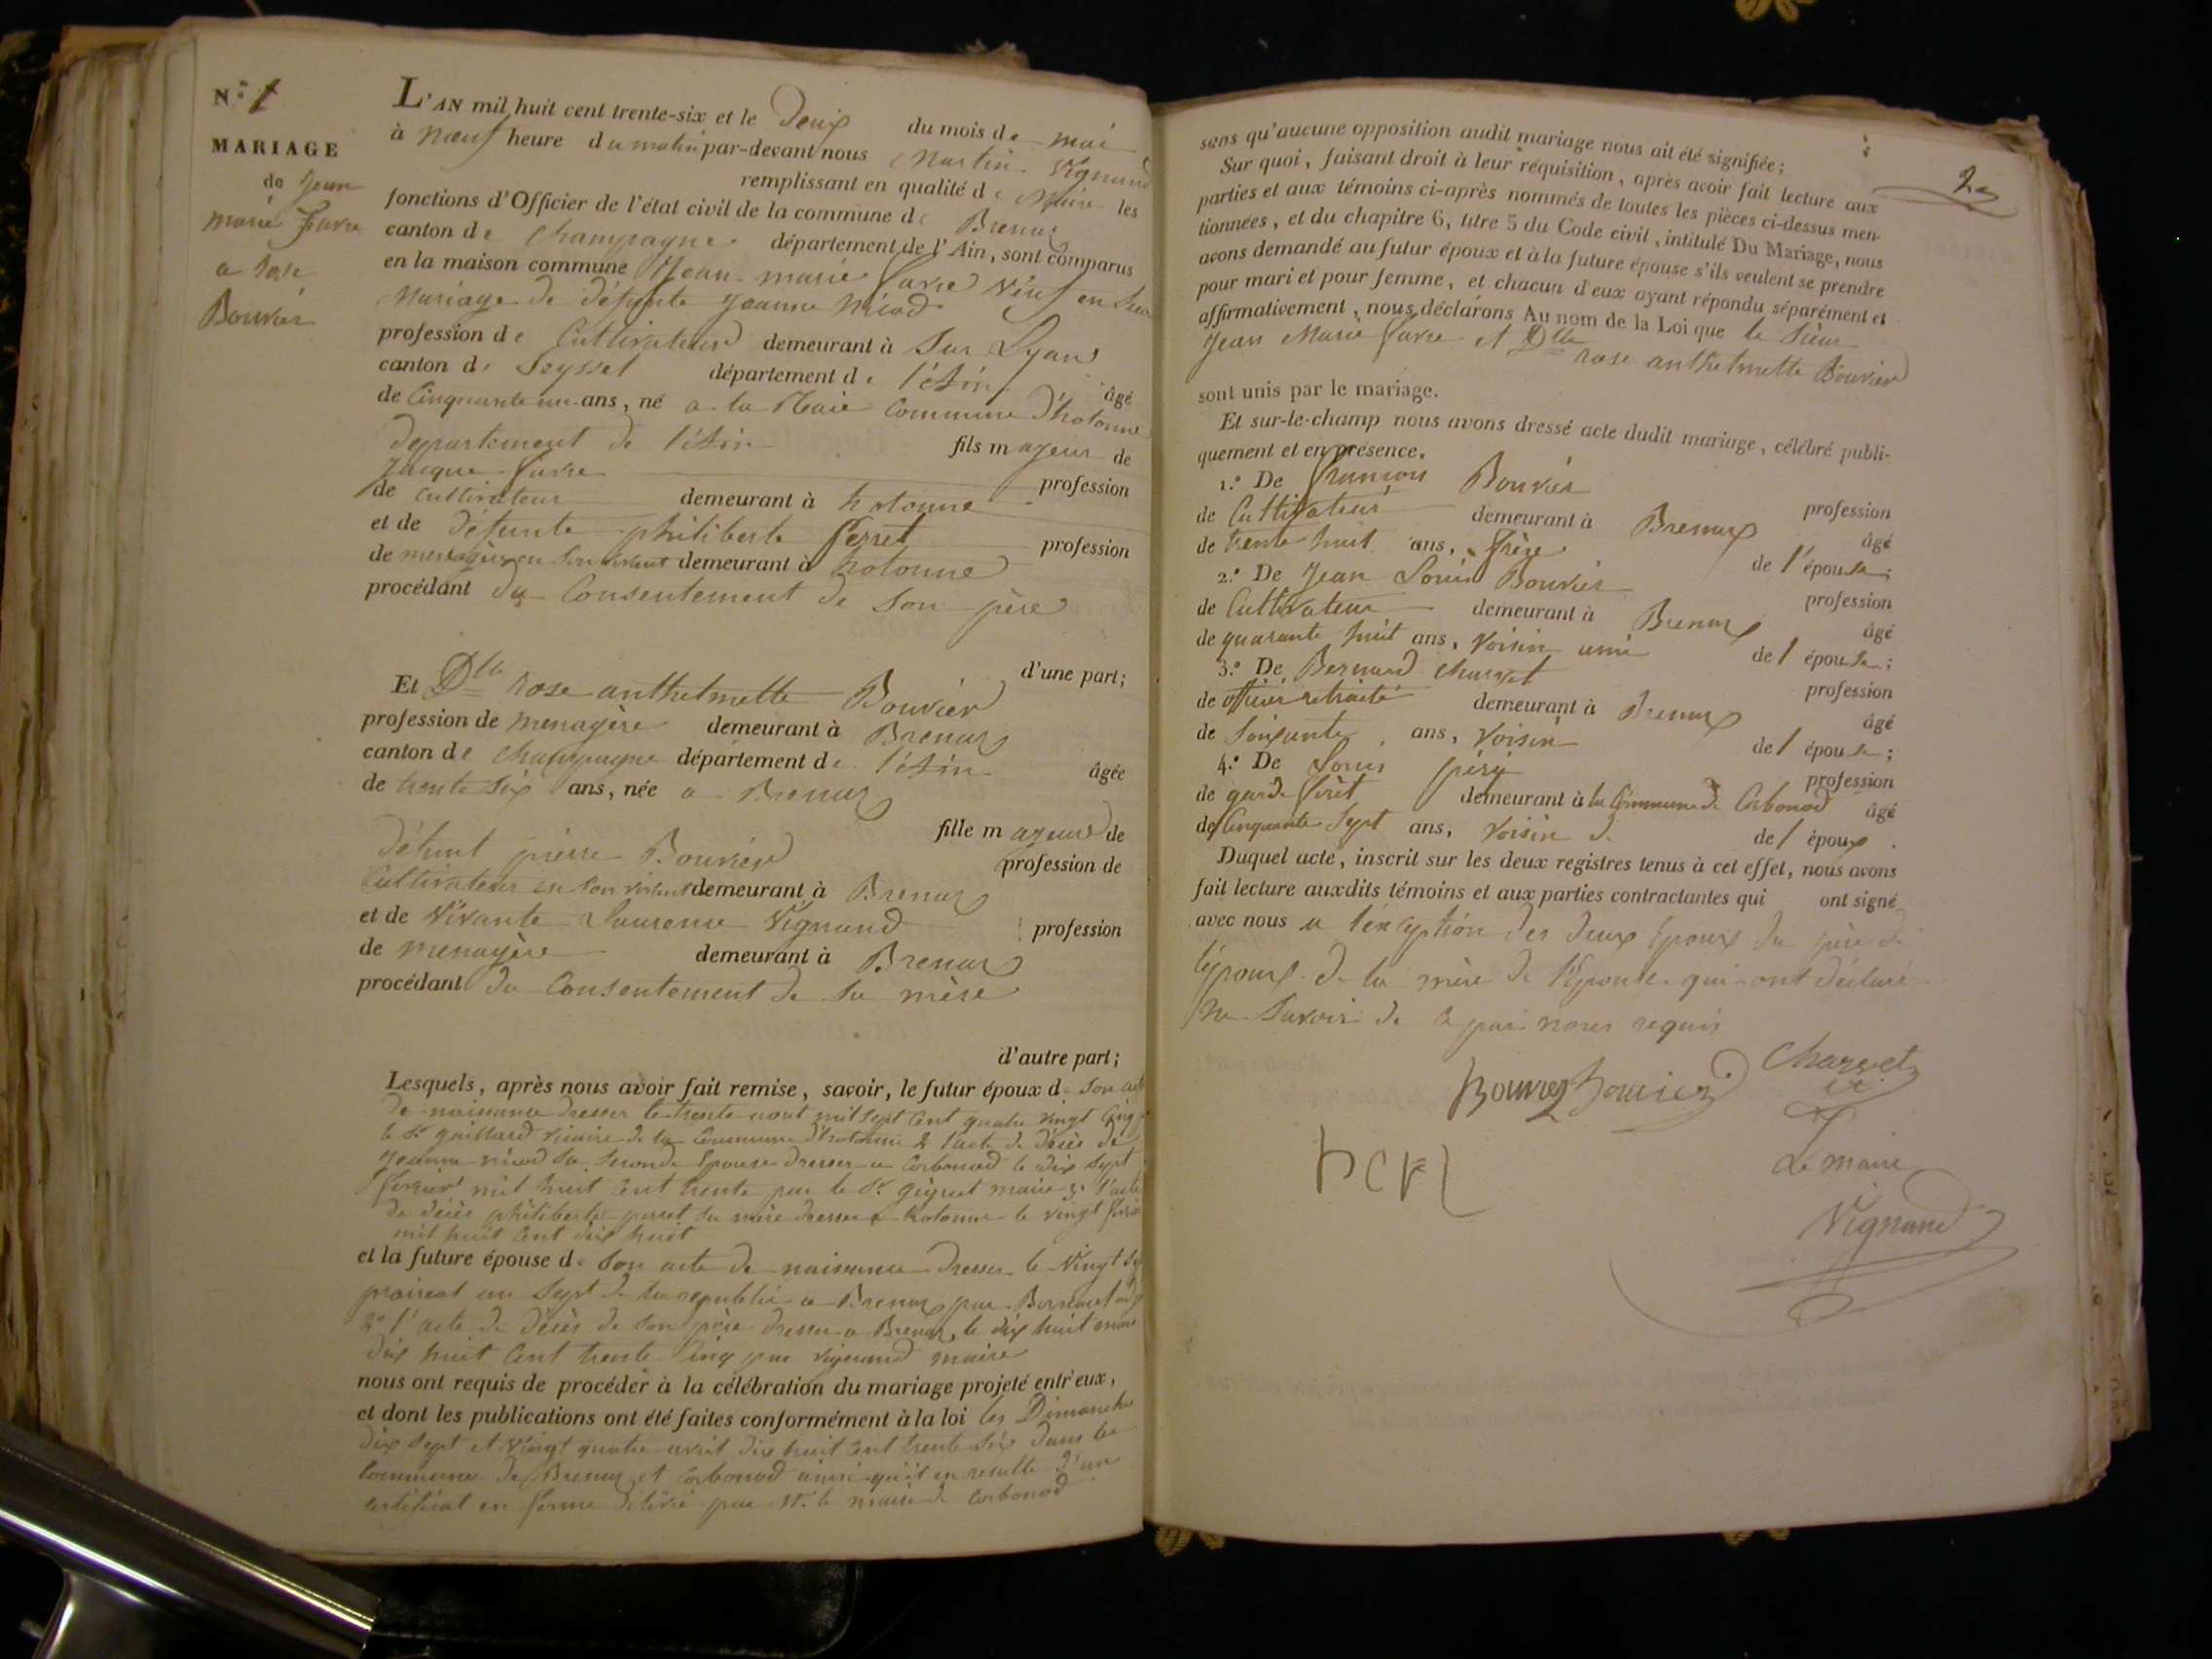 N.º 1
MARIAGE
de Jean
marie Favre
a rose
Bouvier
L'AN mil huit cent trente-six et le deux du mois de mai
à neuf heure du matin par-devant nous Martin Vignand
remplissant en qualité de Maire les
fonctions d'Officier de l'état civil de la commune de Brenaz
canton de Champagne département de l'Ain, sont comparus
en la maison commune Jean marie favre veuf en
Mariage de défunte Jeanne
profession de Cultivateur demeurant à Sur Lyand
canton de Seyssel département de l'Ain âgé
de Cinquante un ans, né a la commune d'hotonne
departement de l'Ain fils majeur de
Jacque favre profession
de cultivateur demeurant à hotonne
et de défunte philiberte perret profession
de menagère en son vivant demeurant à hotonne
procédant du Consentement de son père
d'une part;
Et Dlle rose anthelmette Bouvier
profession de menagère demeurant à Brenaz
canton de champagne département de l'Ain âgée
de trente six ans, née a Brenaz
fille majeure de
défunt pierre Bouvier profession de
Cultivateur en son vivant demeurant à Brenaz
et de vivante Laurence Vignand profession
de menagère demeurant à Brenaz
procédant du Consentement de sa mère
d'autre part;
Lesquels, après nous avoir fait remise, savoir, le futur époux de son acte
de naissance dresser le trente aout mil sept cent quatre vingt Cinq
le Sr gaillard vicaire de la Commune d'hotonne 2º l'acte de décès de
Jeanne sa seconde Epouse dresser a Corbonod le dix sept
fevrier mil huit cent trente par le Sr maire 3º l'acte
de décès philiberte perret sa mère dresser a hotonne le vingt
mil huit cent dix huit
et la future épouse de son acte de naissance dresser le Vingt
prairial an sept de la republic a Brenaz par
2º l'acte de décès de son père dresser a Brenaz le dix huit
dix huit Cent trente Cinq par vignand maire
nous ont requis de procéder à la célébration du mariage projeté entr'eux,
et dont les publications ont été faites conformément à la loi les Dimanches
dix sept et vingt quatre avril dix huit cent trente six dans les
Communes de Brenaz et Corbonod ainsi qu'il en resulte d'un
certificat en forme délivré par Mr le maire de Corbonod
2
sans qu'aucune opposition audit mariage nous ait été signifiée;
Sur quoi, faisant droit à leur réquisition, après avoir fait lecture aux
parties et aux témoins ci-après nommés de toutes les pièces ci-dessus men-
tionnées, et du chapitre 6, titre 5 du Code civil, intitulé Du Mariage, nous
avons demandé au futur époux et à la future épouse s'ils veulent se prendre
pour mari et pour femme, et chacun d'eux ayant répondu séparément et
affirmativement, nous déclarons Au nom de la Loi que le Sieur
Jean Marie favre et Dlle rose anthelmette Bouvier
sont unis par le mariage.
Et sur-le-champ nous avons dressé acte dudit mariage, célébré publi-
quement et en présence.
1.º De françois Bouvier profession
de Cultivateur demeurant à Brenaz âgé
de trente huit ans, frère de l'épouse;
2.º De Jean Louis Bouvier profession
de Cultivateur demeurant à Brenaz âgé
de quarante huit ans, voisin ami de l'épouse;
3.º De Bernard charvet profession
de officier retraité demeurant à Brenaz âgé
de soixante ans, voisin de l'épouse;
4.º De Louis péri profession
de garde forêt demeurant à la Commune de Corbonod âgé
de Cinquante sept ans, voisin de de l'époux.
Duquel acte, inscrit sur les deux registres tenus à cet effet, nous avons
fait lecture auxdits témoins et aux parties contractantes qui ont signé
avec nous a l'exception des deux Epoux du père de
l'époux de la mère de l'Epouse qui ont déclaré
ne Savoir de ce par nous requis
Bouvier Bouvier Charvet
peri
Le maire
Vignand